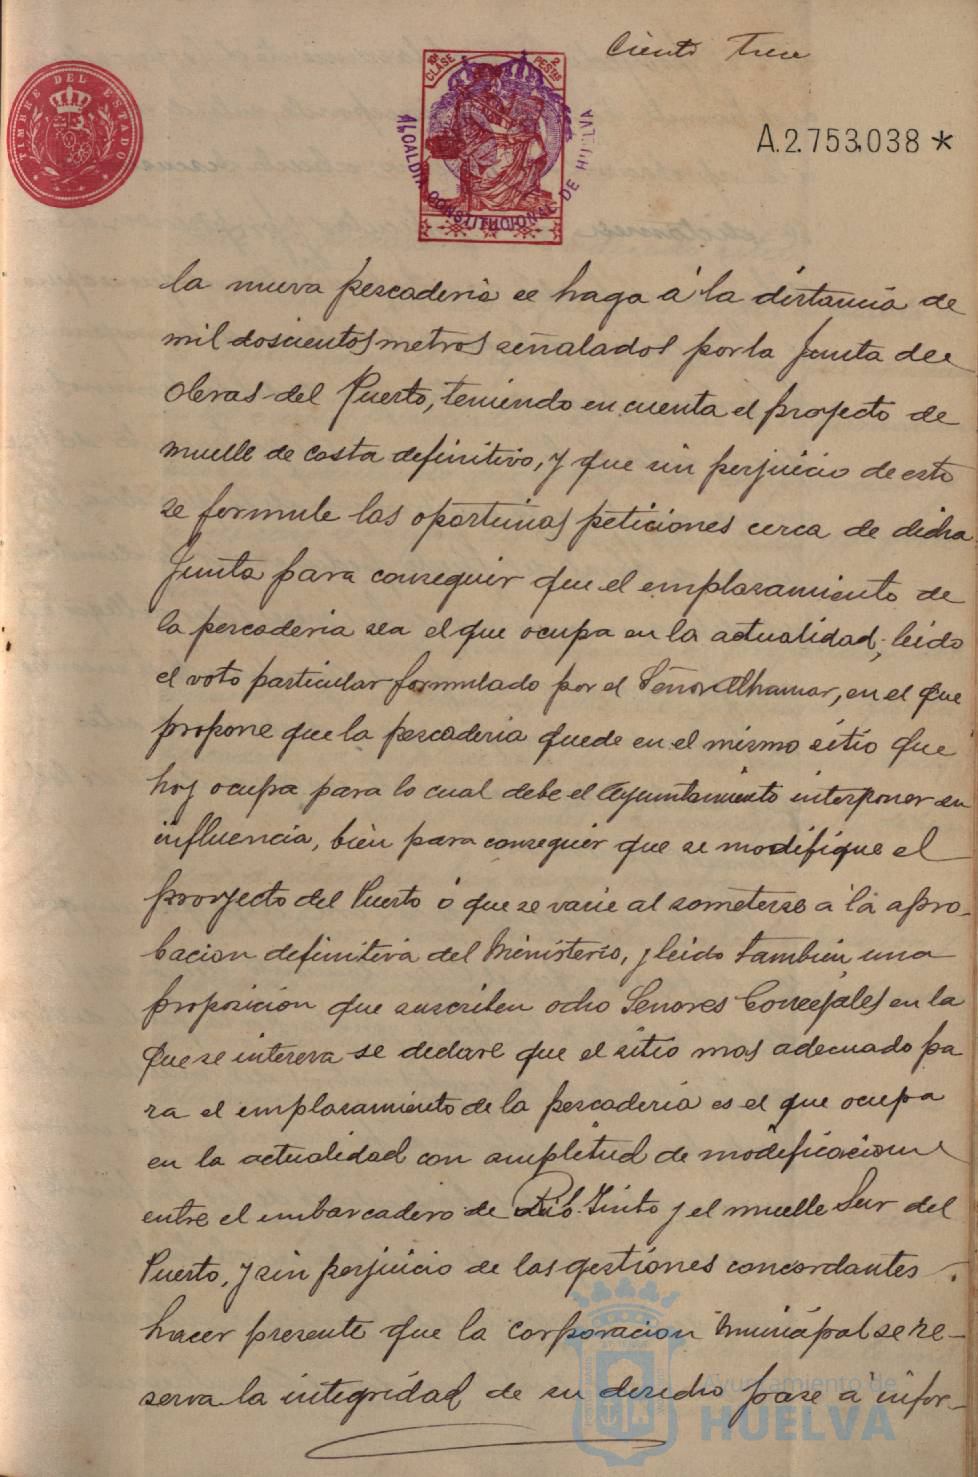 Ciento Trece
TIMBRE DEL ESTADO
10ª CLASE 2 PESTAS
ALCALDIA CONSTITUCIONAL DE HUELVA
A.2.753.038 *
la nueva pescaderia se haga á la distancia de
mil doscientos metros señalados por la Junta de
Obras del Puerto, teniendo en cuenta el proyecto de
muelle de costa definitivo, y que sin perjuicio de esto
se formule las oportunas peticiones cerca de dicha
Junta para conseguir que el emplasamiento de
la pescaderia sea el que ocupa en la actualidad; leido
el voto particular formulado por el Señor Alhamar, en el que
propone que la pescaderia quede en el mismo sitio que
hoy ocupa para lo cual debe el Ayuntamiento interponer su
influencia, bien para conseguir que se modifique el
proyecto del Puerto ó que se varie al someterse a la apro-
bacion definitiva del Ministerio, y leido tambien una
proposicion que suscriben ocho Señores Concejales en la
que se interesa se declare que el sitio mas adecuado pa
ra el emplasamiento de la pescaderia es el que ocupa
en la actualidad con amplitud de modificacion
entre el embarcadero de Rio-Tinto y el muelle Sur del
Puerto, y sin perjuicio de las gestiones concordantes
hacer presente que la corporacion municipal se re-
serva la integridad de su derecho pase á infor-
Ayuntamiento de
HUELVA